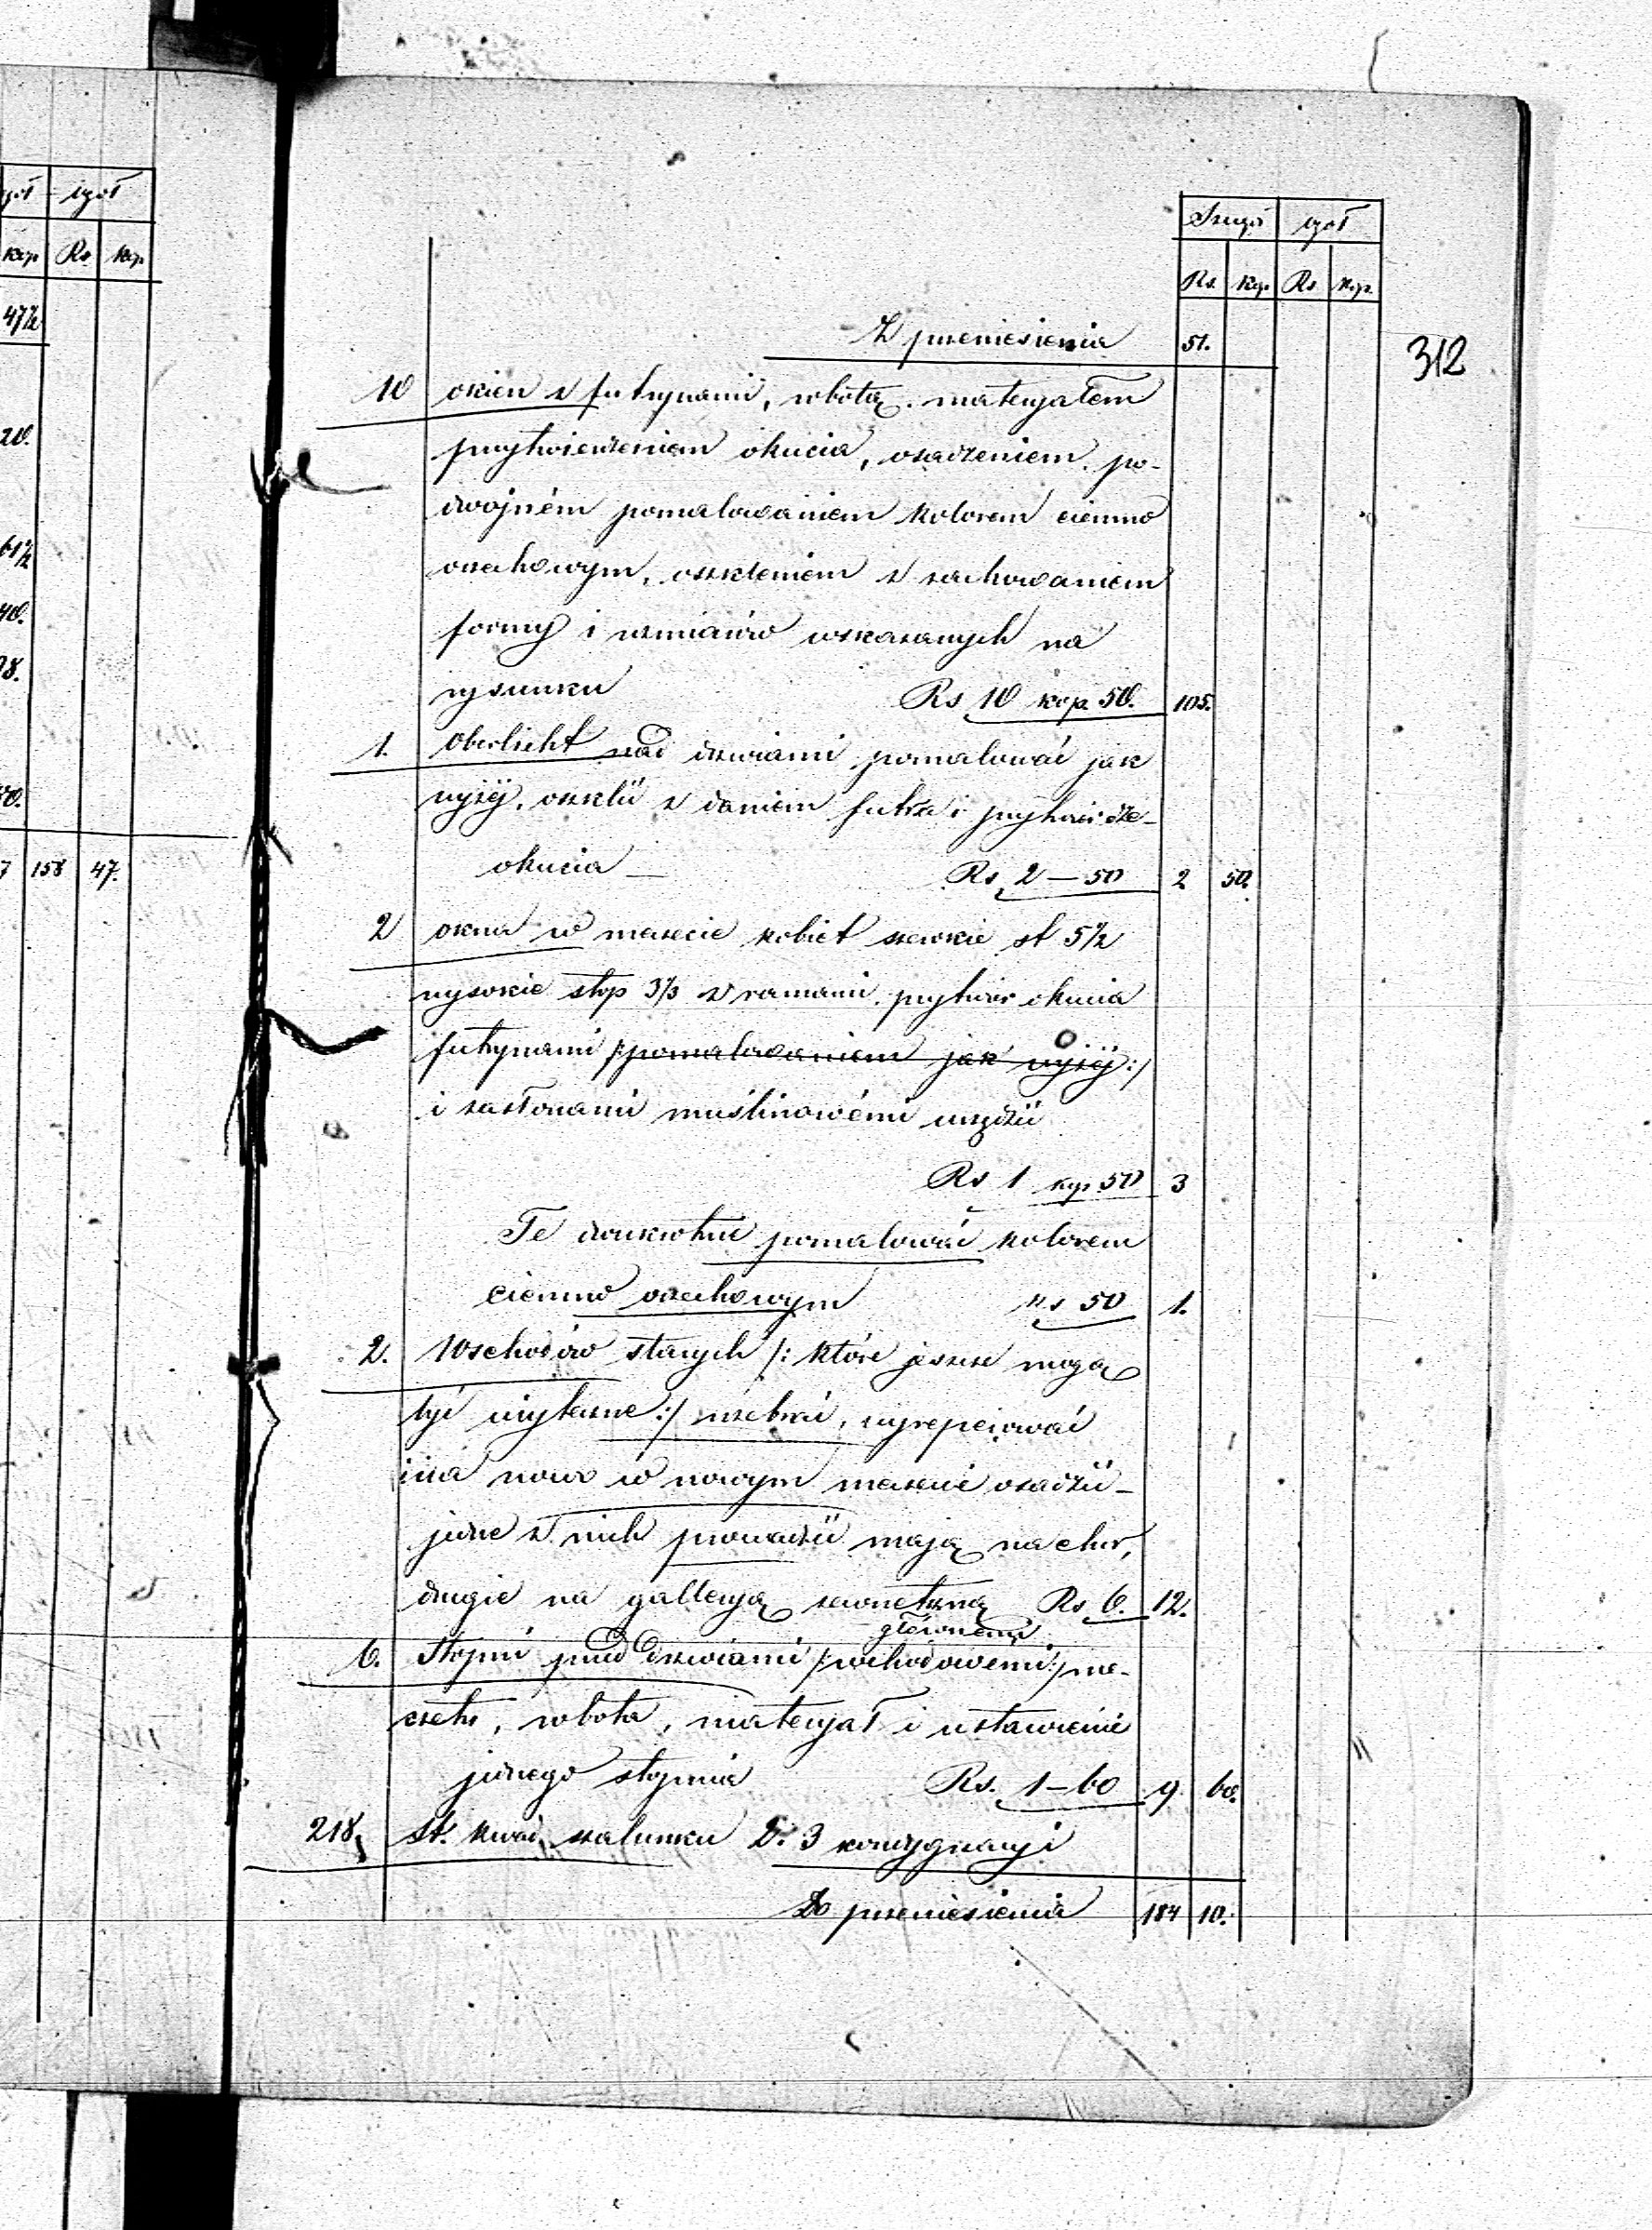 gół
igół
kop
Rs.
kop.
47½
20.
61½
40.
78.
158
47.
Szegó
igół
Rs.
Kop.
Rs
Kop.
312
Z przeniesienia 51.
10 okien z futrynami, robotą, materyałem
przytwierdzeniem okucia, osadzeniem, po-
dwójném pomalowaniem kolorem ciemno
orzechowym, oszkleniem z zachowaniem
formy i rozmiarów wskazanych na
rysunku Rs 10 kop. 50. 105.
1. Oberlicht nad drzwiami pomalować jak
wyżéj, oszklić z daniem futra i przytwierdze-
okucia — Rs 2 — 50 2 50.
2 okna w meczecie kobiet szerokie st 5½
wysokie stóp 3⅓ z ramami, przytwier okucia
futrynami /:pomalowaniem jak wyżéj:/
i zasłonami muślinowémi urządzić
Rs 1 kop. 50 3
Te dwukrotnie pomalować kolorem
ciemno orzechowym Rs 50 1.
2. Wschodów starych /: które jeszcze mogą
być użyteczne:/ rozebrać, wyreperować
i na nowo w nowym meczecie osadzić —
jedne z nich prowadzić mają na chór,
drugie na galleryą zewnetrzną Rs 6. 12.
głównemi
6. Stopni przed drzwiami /:wchodowemi:/ me-
czetu, robota, materyał i ustawienie
jednego stopnia Rs. 1 — 60 9 60.
218, st. kwad. szalunku D: 3 kondygnacyi
Do przeniesienia 184 10.